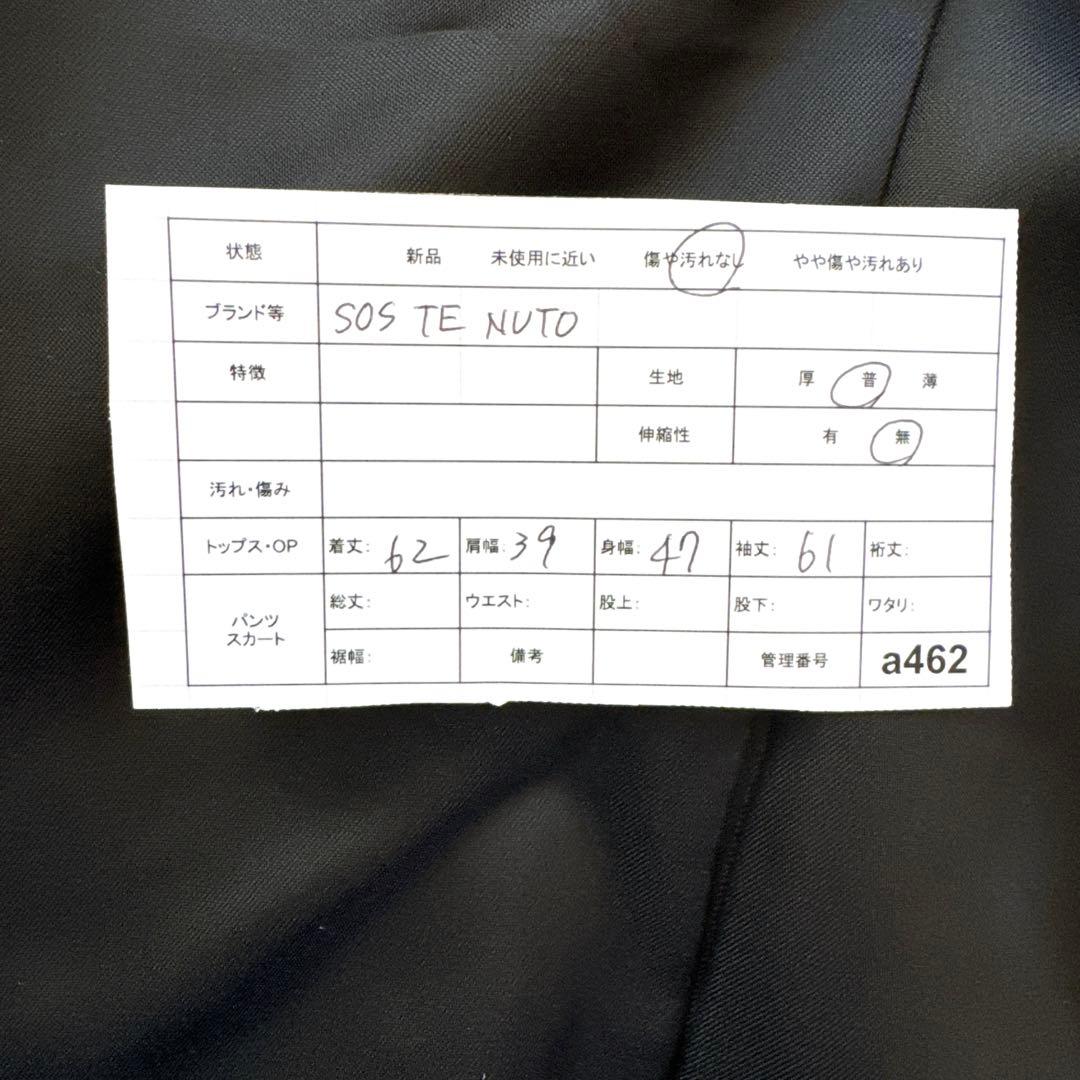 状態 新品 未使用に近い 傷や汚れなし やや傷や汚れあり
ブランド等 SOS TE NUTO
特徴 生地 厚 普 薄
伸縮性 有 無
汚れ・傷み
トップス・OP 着丈: 62 肩幅: 39 身幅: 47 袖丈: 61 裄丈:
パンツ
スカート
総丈: ウエスト: 股上: 股下: ワタリ:
裾幅: 備考 管理番号 a462